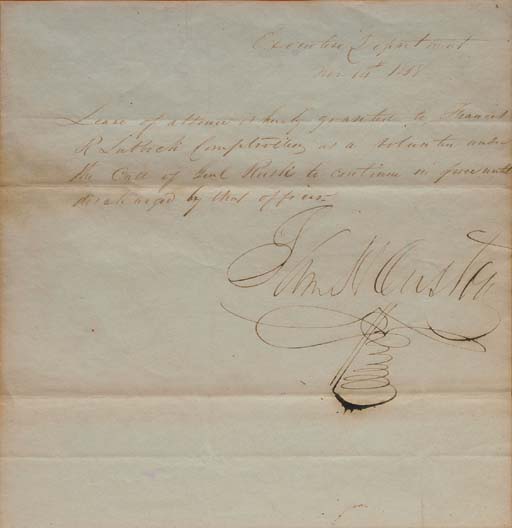 Executive Department
Nov 10th 1838
Leave of absence is hereby granted to Francis
R Lubbock Comptroller, as a volunteer under
the Call of Genl Rusk to continue in force until
discharged by that officer.
Sam Houston